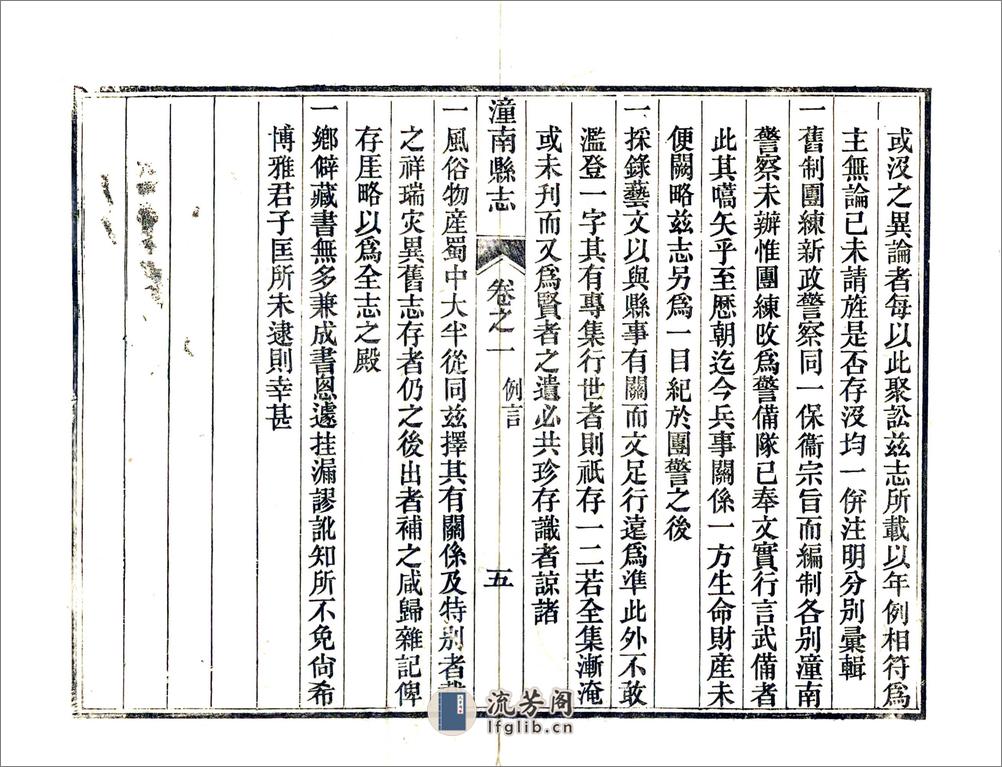 或沒之異論者每以此聚訟茲志所載以年例相符爲
主無論已未請旌是否存沒均一併注明分別彙輯
一舊制團練新政警察同一保衞宗旨而編制各別潼南
警察未辦惟團練改爲警備隊已奉文實行言武備者
此其嚆矢乎至歴朝迄今兵事關係一方生命財産未
便闕略茲志另爲一目紀於團警之後
一採錄藝文以與縣事有關而文足行遠爲準此外不敢
濫登一字其有專集行世者則祇存一二若全集漸淹
或未刊而又爲賢者之遺必共珍存識者諒諸
潼南縣志 卷之一 例言 五
一風俗物産蜀中大半從同茲擇其有關係及特別者
之祥瑞灾異舊志存者仍之後出者補之咸歸雜記俾
存厓略以爲全志之殿
一鄉僻藏書無多兼成書恖遽挂漏謬訛知所不免尙希
博雅君子匡所未逮則幸甚
流芳阁
lfglib.cn